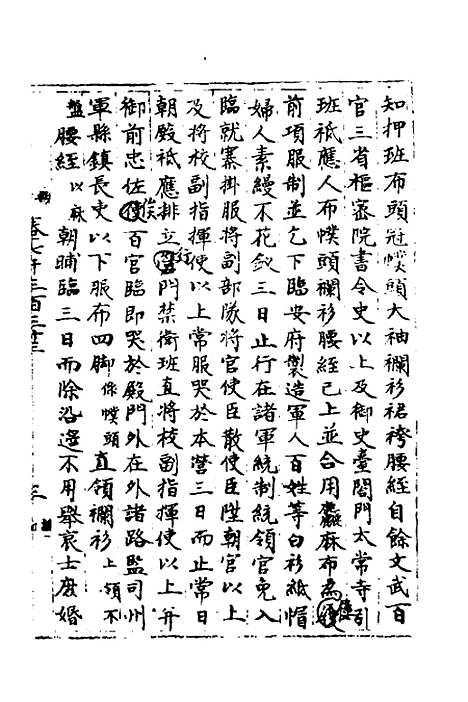 知押班布頭冠幞頭大袖襴衫裙袴腰絰自餘文武百
官三省樞密院書令史以上及御史臺閤門太常寺引
班祗應人布幞頭襴衫腰絰已上並合用麤麻布為
前項服制並乞下臨安府製造軍人百姓等白衫紙帽
婦人素縵不花釵三日止行在諸軍統制統領官免入
臨就寨掛服將副部隊將官使臣散使臣陞朝官以上
及將校副指揮使以上常服哭於本營三日而止常日
朝殿祗應排立行門禁衛班直將校副指揮使以上并
御前忠佐候百官臨即哭於殿門外在外諸路監司州
軍縣鎮長吏以下服布四脚係幞頭直領襴衫上領不
盤腰絰以麻朝晡臨三日而除沿邊不用舉哀士庶婚